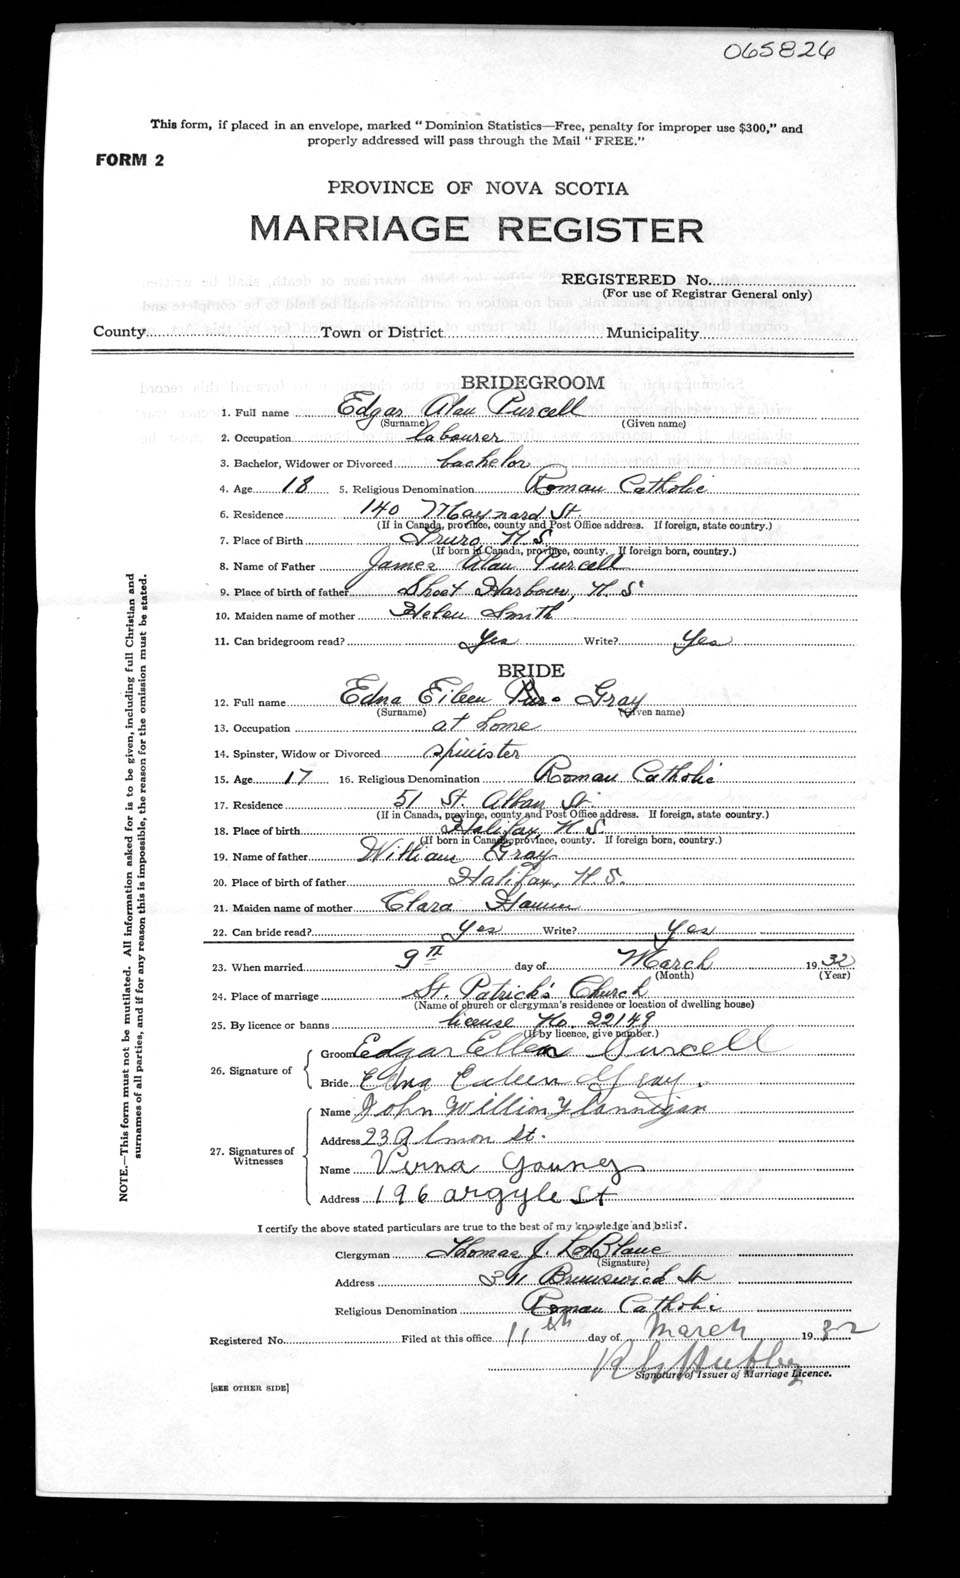 065826
This form, if placed in an envelope, marked "Dominion Statistics—Free, penalty for improper use $300," and
properly addressed will pass through the Mail "FREE."
FORM 2
PROVINCE OF NOVA SCOTIA
MARRIAGE REGISTER
REGISTERED No.
(For use of Registrar General only)
County Town or District Municipality
BRIDEGROOM
1. Full name Edgar Alan Purcell
(Surname) (Given name)
2. Occupation labourer
3. Bachelor, Widower or Divorced bachelor
4. Age 18 5. Religious Denomination Roman Catholic
6. Residence 140 Maynard St.
(If in Canada, province, county and Post Office address. If foreign, state country.)
7. Place of Birth Truro, N.S.
(If born in Canada, province, county. If foreign born, country.)
8. Name of Father James Alan Purcell
9. Place of birth of father Sheet Harbour, N.S.
10. Maiden name of mother Helen Smith
11. Can bridegroom read? Yes Write? Yes
BRIDE
12. Full name Edna Eileen Gray
(Surname) (Given name)
13. Occupation at home
14. Spinster, Widow or Divorced spinister
15. Age 17 16. Religious Denomination Roman Catholic
17. Residence 51 St. Alban St.
(If in Canada, province, county and Post Office address. If foreign, state country.)
18. Place of birth Halifax, N.S.
(If born in Canada, province, county. If foreign born, country.)
19. Name of father William Gray
20. Place of birth of father Halifax, N.S.
21. Maiden name of mother Clara
22. Can bride read? Yes Write? Yes
23. When married 9th day of March 1932
(Month) (Year)
24. Place of marriage St. Patrick's Church
(Name of church or clergyman's residence or location of dwelling house)
25. By licence or banns license No. 22149
(If by licence, give number.)
26. Signature of Groom Edgar Ellen Purcell
Bride Edna Eileen Gray.
27. Signatures of Witnesses Name John William Flannigan
Address 23 Almon St.
Name Verna Young
Address 196 argyle St
I certify the above stated particulars are true to the best of my knowledge and belief.
Clergyman Thomas J. LeBlanc
(Signature)
Address Brunswick St
Religious Denomination Roman Catholic
Registered No. Filed at this office 11th day of March 1932
Signature of Issuer of Marriage Licence.
[SEE OTHER SIDE]
NOTE.—This form must not be mutilated. All information asked for is to be given, including full Christian and
surnames of all parties, and if for any reason this is impossible, the reason for the omission must be stated.